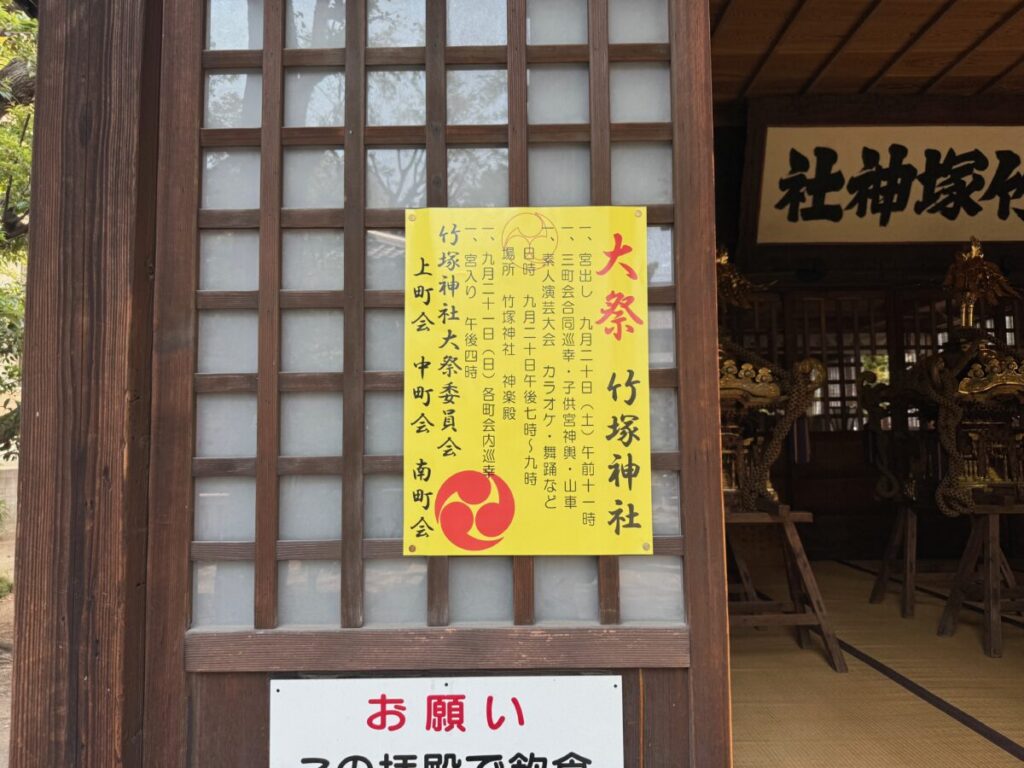 大祭 竹塚神社
一、宮出し 九月二十日（土）午前十一時
一、三町会合同巡幸・子供宮神輿・山車
一、素人演芸大会 カラオケ・舞踊など
日時 九月二十日午後七時～九時
場所 竹塚神社 神楽殿
一、九月二十一日（日）各町会内巡幸
一、宮入り 午後四時
竹塚神社大祭委員会
上町会 中町会 南町会
竹塚神社
お願い
この拝殿で飲食